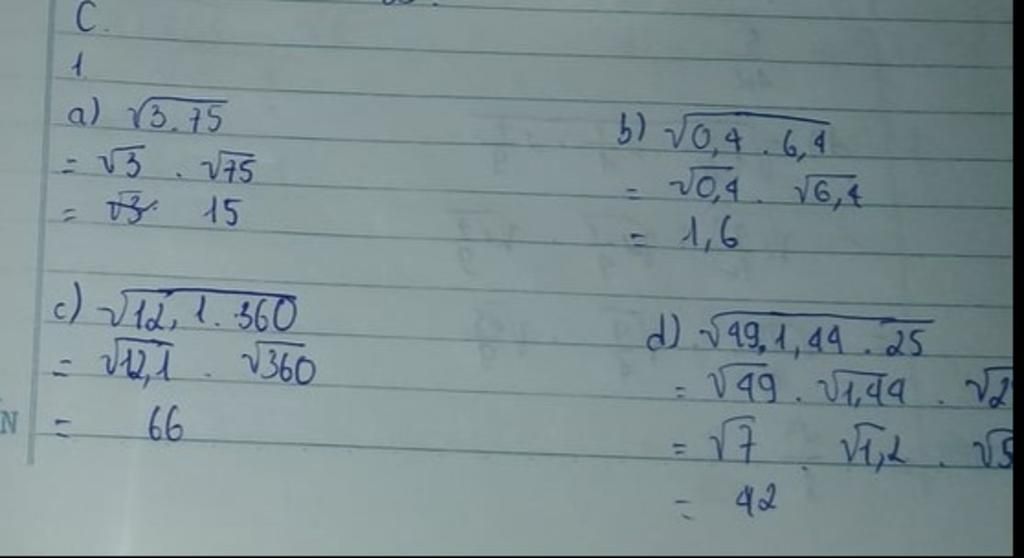 C.
1
a) √3.75
= √3 . √75
= √3. 15
b) √0,4 . 6,4
= √0,4 . √6,4
= 1,6
c) √12,1.360
= √12,1 . √360
= 66
d) √49.1,44.25
= √49 . √1,44 . √2
= √7 . √1,2 . √5
= 42
N